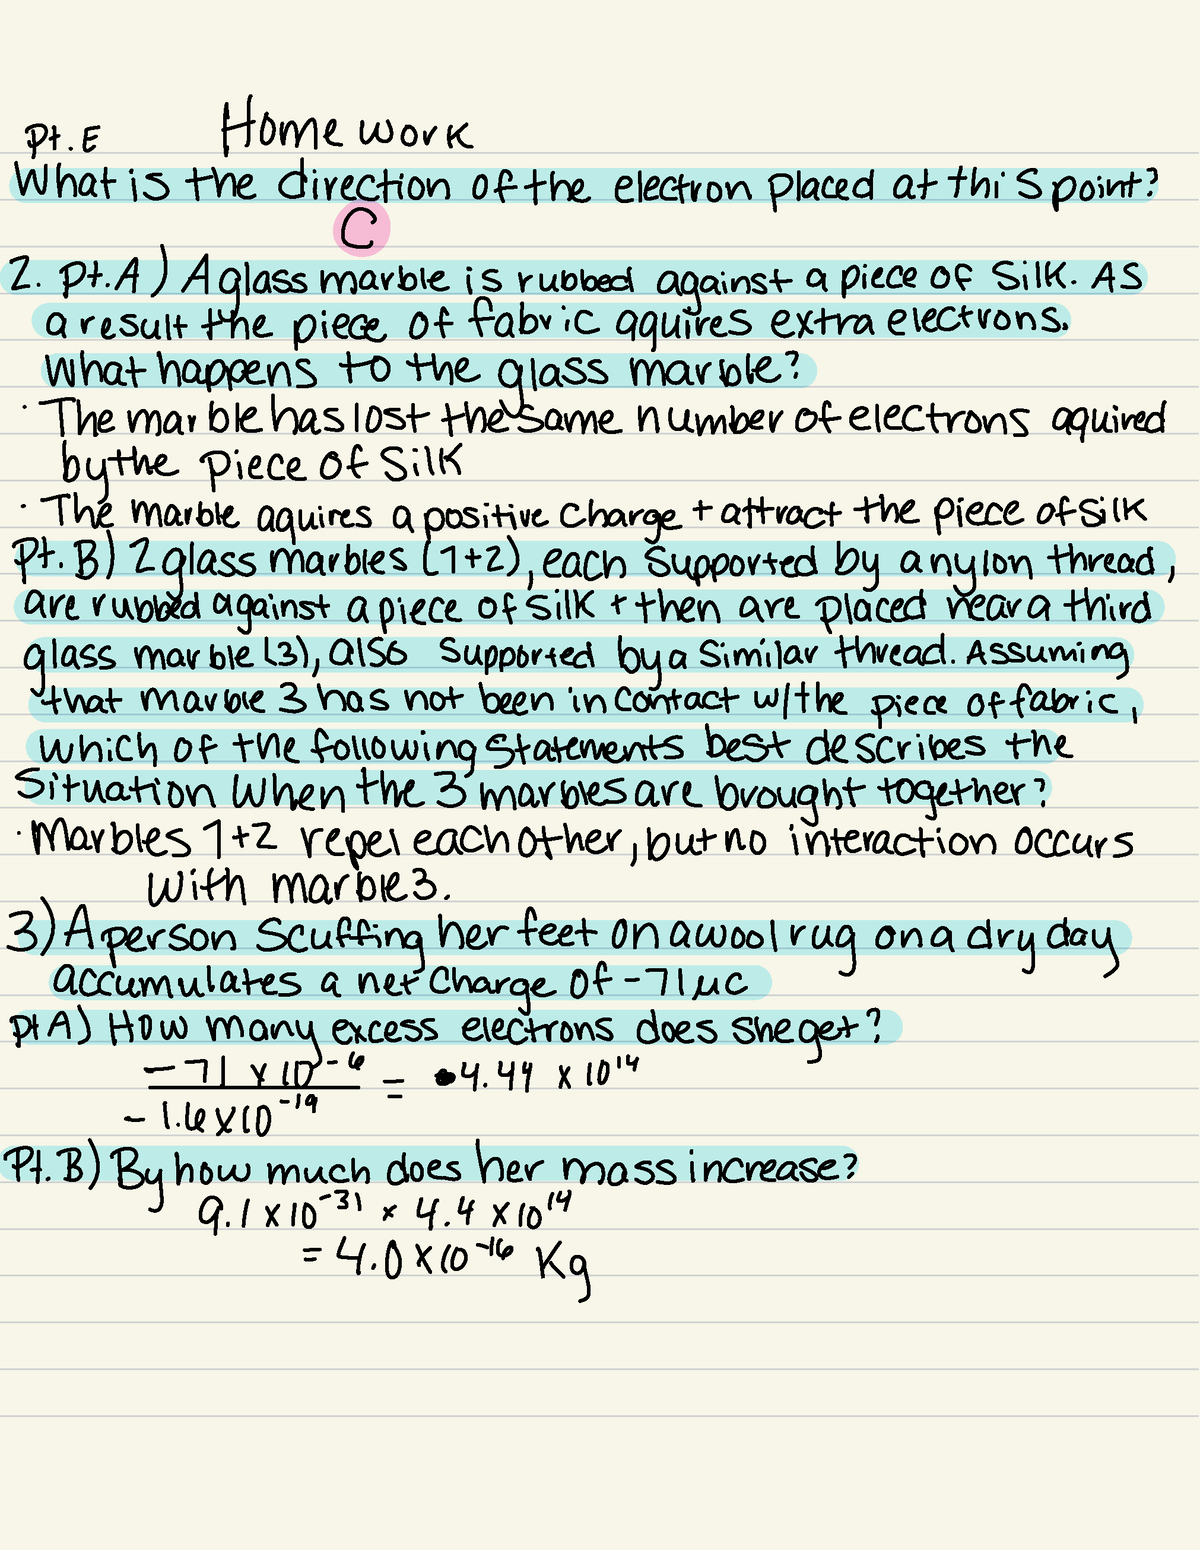 Pt. E Homework
What is the direction of the electron placed at this point?
C
2. Pt. A) A glass marble is rubbed against a piece of silk. As
a result the piece of fabric aquires extra electrons.
What happens to the glass marble?
· The marble has lost the same number of electrons aquired
by the piece of silk
· The marble aquires a positive charge + attract the piece of silk
Pt. B) 2 glass marbles (1+2), each supported by a nylon thread,
are rubbed against a piece of silk + then are placed near a third
glass marble (3), also supported by a similar thread. Assuming
that marble 3 has not been in contact w/the piece of fabric,
which of the following statements best describes the
situation when the 3 marbles are brought together?
· Marbles 1+2 repel each other, but no interaction occurs
with marble 3.
3) A person scuffing her feet on a wool rug on a dry day
accumulates a net charge of -71 μc
pt A) How many excess electrons does she get?
-71 x 10^-6 / -1.6 x 10^-19 = 4.44 x 10^14
Pt. B) By how much does her mass increase?
9.1 x 10^-31 x 4.4 x 10^14
= 4.0 x 10^-16 Kg